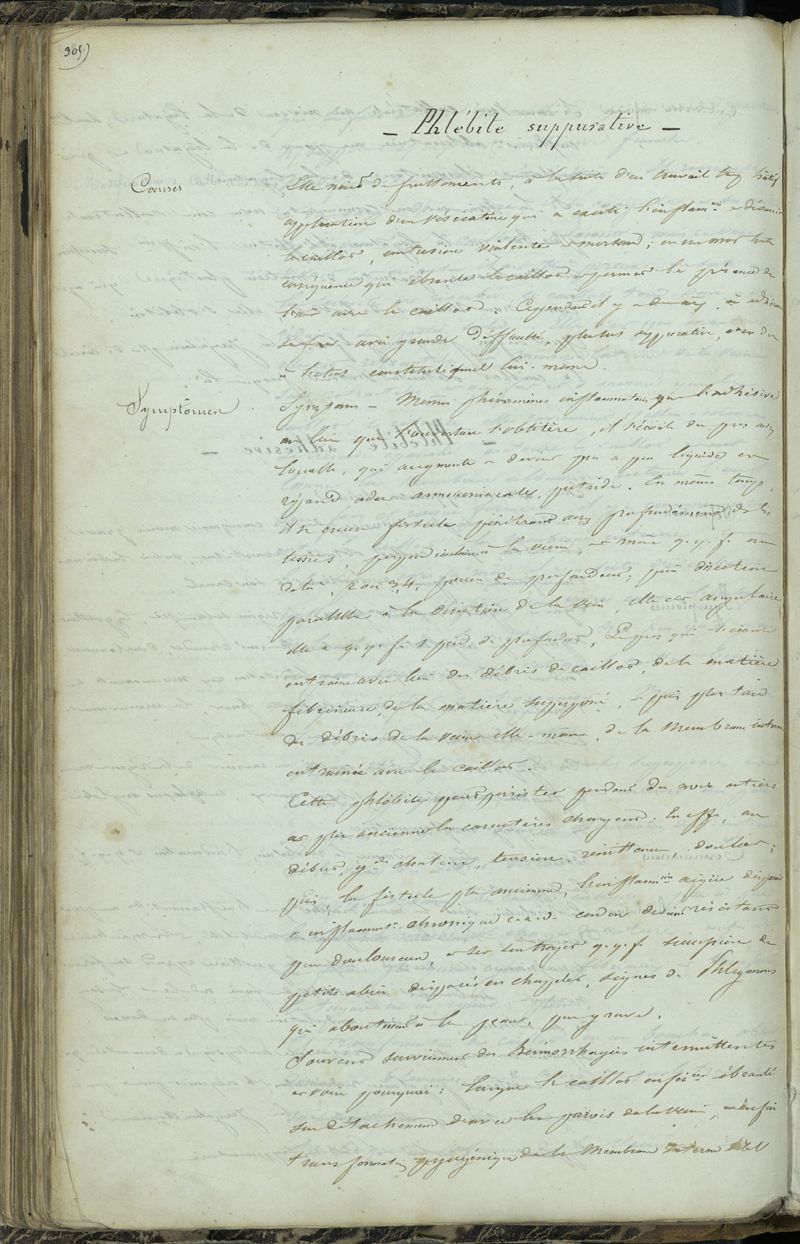 305)
- Phlébite suppurative -
Causes
Elle naît de frottements, à la suite d'un travail trop hâtif
application d'un vésicatoire qui a excité l'inflam
le caillot, contusion violente morsure ; en un mot toute
conséquence qui ébranle le caillot permet la présence de
l'air avec le caillot. Cependant il y a
avec grande difficulté, suppurative,
constitutionnel lui-même.
Symptômes
Sympt - Mêmes phénomènes inflammatoires que l'adhésive
au lieu que l'ouverture s'oblitère, il s'écoule du pus
louable, qui augmente devient peu à peu liquide
répand odeur ammoniacale, putride. En même temps,
il se creuse fistule pénétrant profondément de les
tissus, la veine, même q.q.f. on
2 ou 3, 4, pouces de profondeur, direction
parallèle à la direction de la veine, elle est angulaire
elle a q.q.f. 1 pied de profondeur, Le pus qui s'écoule
entraîne avec lui des débris de caillot, de la matière
fibrineuse, de la matière, puis plus tard
des débris de la veine elle-même, de la membrane interne
entraînée avec le caillot.
Cette phlébite peut persister pendant des mois entiers
plus ancienne les caractères changent. En effet, au
début, chaleur, tension, douleur ;
puis, la fistule plus ancienne, l'inflamm aiguë disparaît
inflammat chronique c.a.d. cordon devient résistant
peu douloureux, sur son trajet q.q.f. succession de
petits abcès disposés en chapelet, signes de Phlegmons
qui aboutissent à la peau, peu grave.
Souvent surviennent des hémorrhagies intermittentes
voici pourquoi : lorsque le caillot ébranlé
son détachement d'avec les parois de la veine, enfin
transformation pyogénique de la Membrane interne